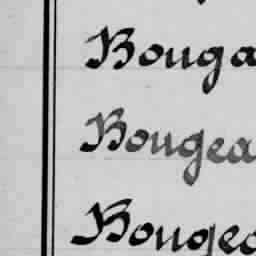 Bouga
Bougea
Bougea